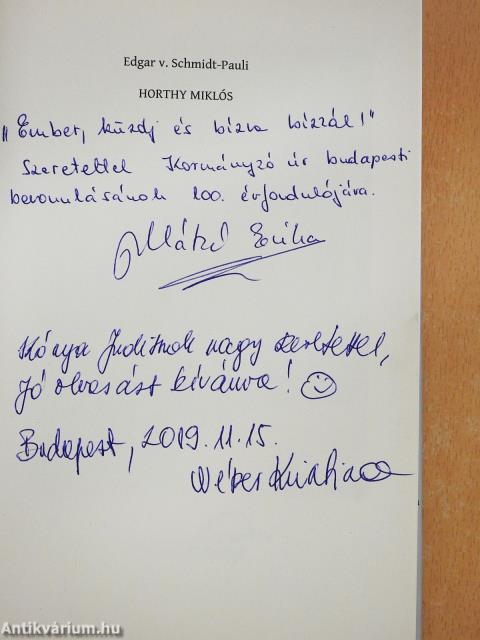 Edgar v. Schmidt-Pauli
HORTHY MIKLÓS
"Ember, küzdj és bízva bízzál!"
Szeretettel Kormányzó úr budapesti
bevonulásának 100. évfordulójára.
Mátké Erika
Kónya Juditnak nagy szeretettel,
jó olvasást kívánva!
Budapest, 2019.11.15.
Wéber
Antikvárium.hu